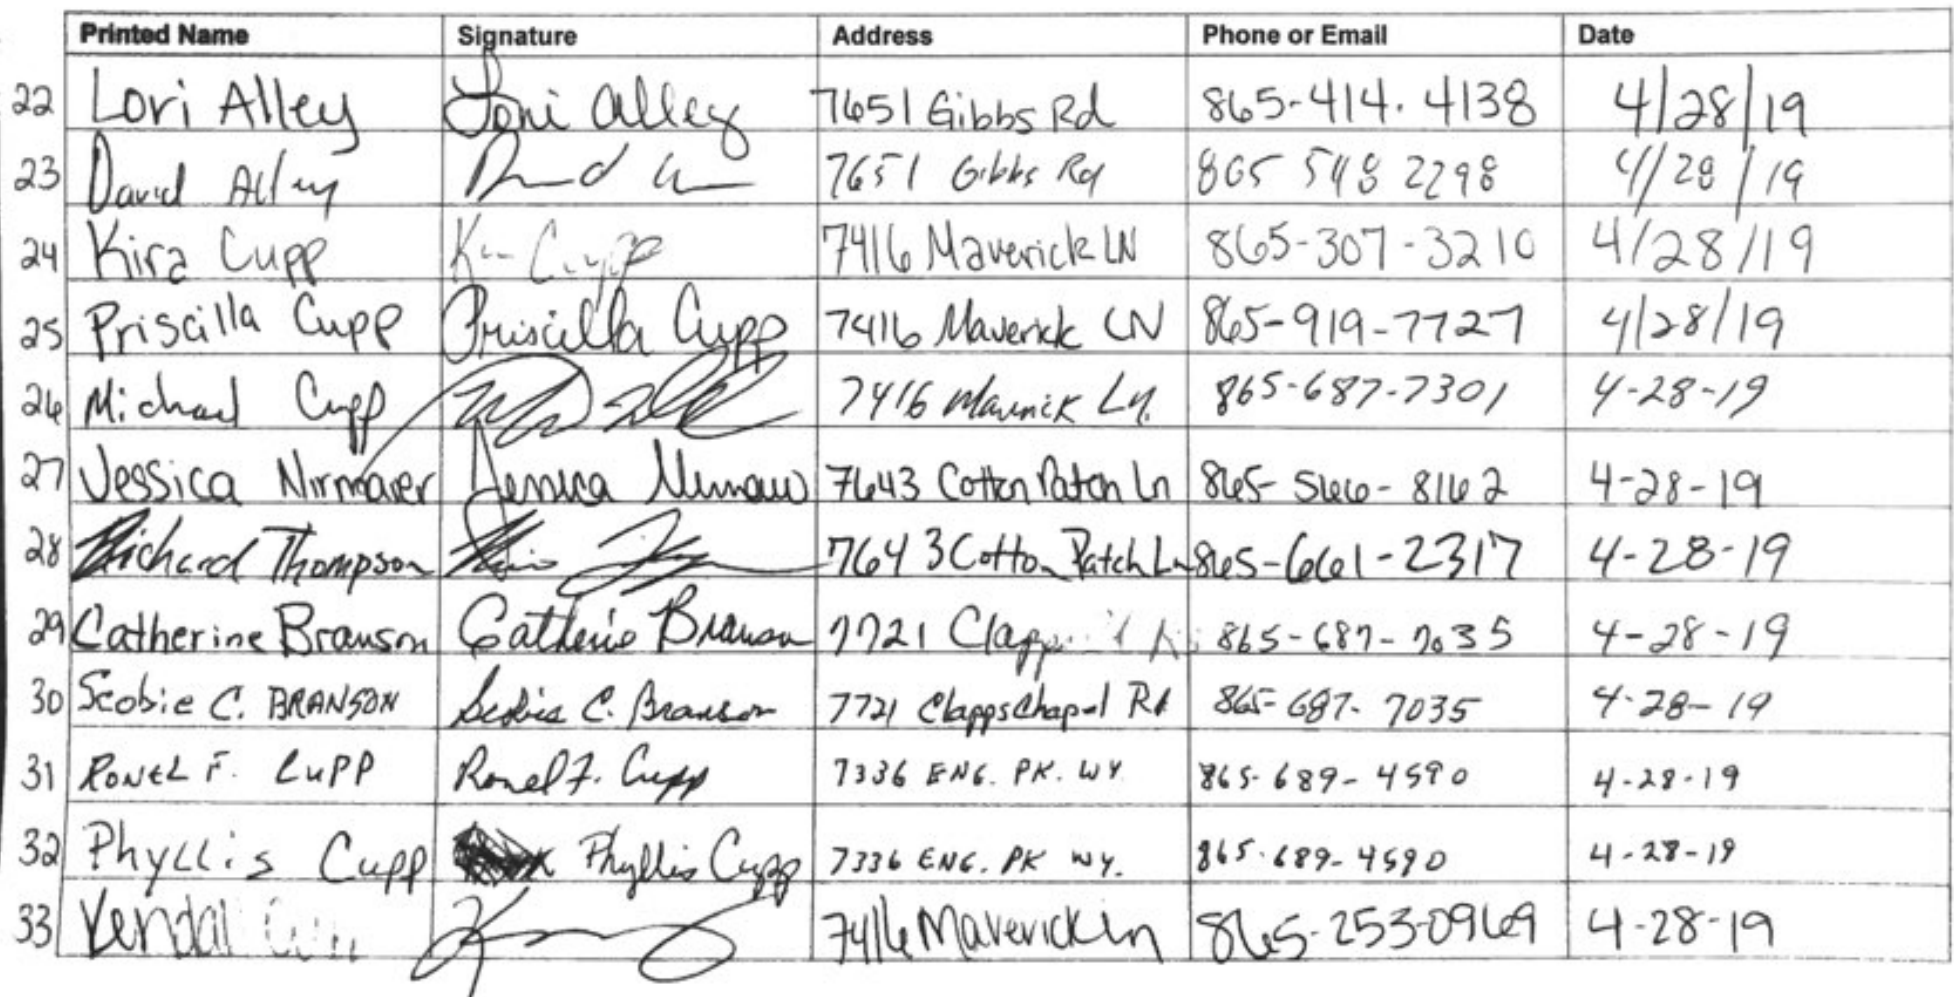 Printed Name Signature Address Phone or Email Date
22 Lori Alley Lori Alley 7651 Gibbs Rd 865-414.4138 4/28/19
23 David Alley 7651 Gibbs Rd 865 548 2298 4/28/19
24 Kira Cupp K Cupp 7416 Maverick LN 865-307-3210 4/28/19
25 Priscilla Cupp Priscilla Cupp 7416 Maverick LN 865-919-7727 4/28/19
26 Michael Cupp 7416 Maverick Ln. 865-687-7301 4-28-19
27 Jessica Nirmaier Jessica 7643 Cotton Patch Ln 865-566-8162 4-28-19
28 Richard Thompson 7643 Cotton Patch Ln 865-661-2317 4-28-19
29 Catherine Branson Catherine Branson 7721 865-687-7035 4-28-19
30 Scobie C. BRANSON Scobie C. Branson 7721 Clapps Chapel Rd 865-687-7035 4-28-19
31 RONEL F. CUPP Ronel F. Cupp 7336 ENG. PK. WY. 865-689-4590 4-28-19
32 Phyllis Cupp Phyllis Cupp 7336 ENG. PK WY. 865-689-4590 4-28-19
33 Kendal 7416 Maverick Ln 865-253-0969 4-28-19